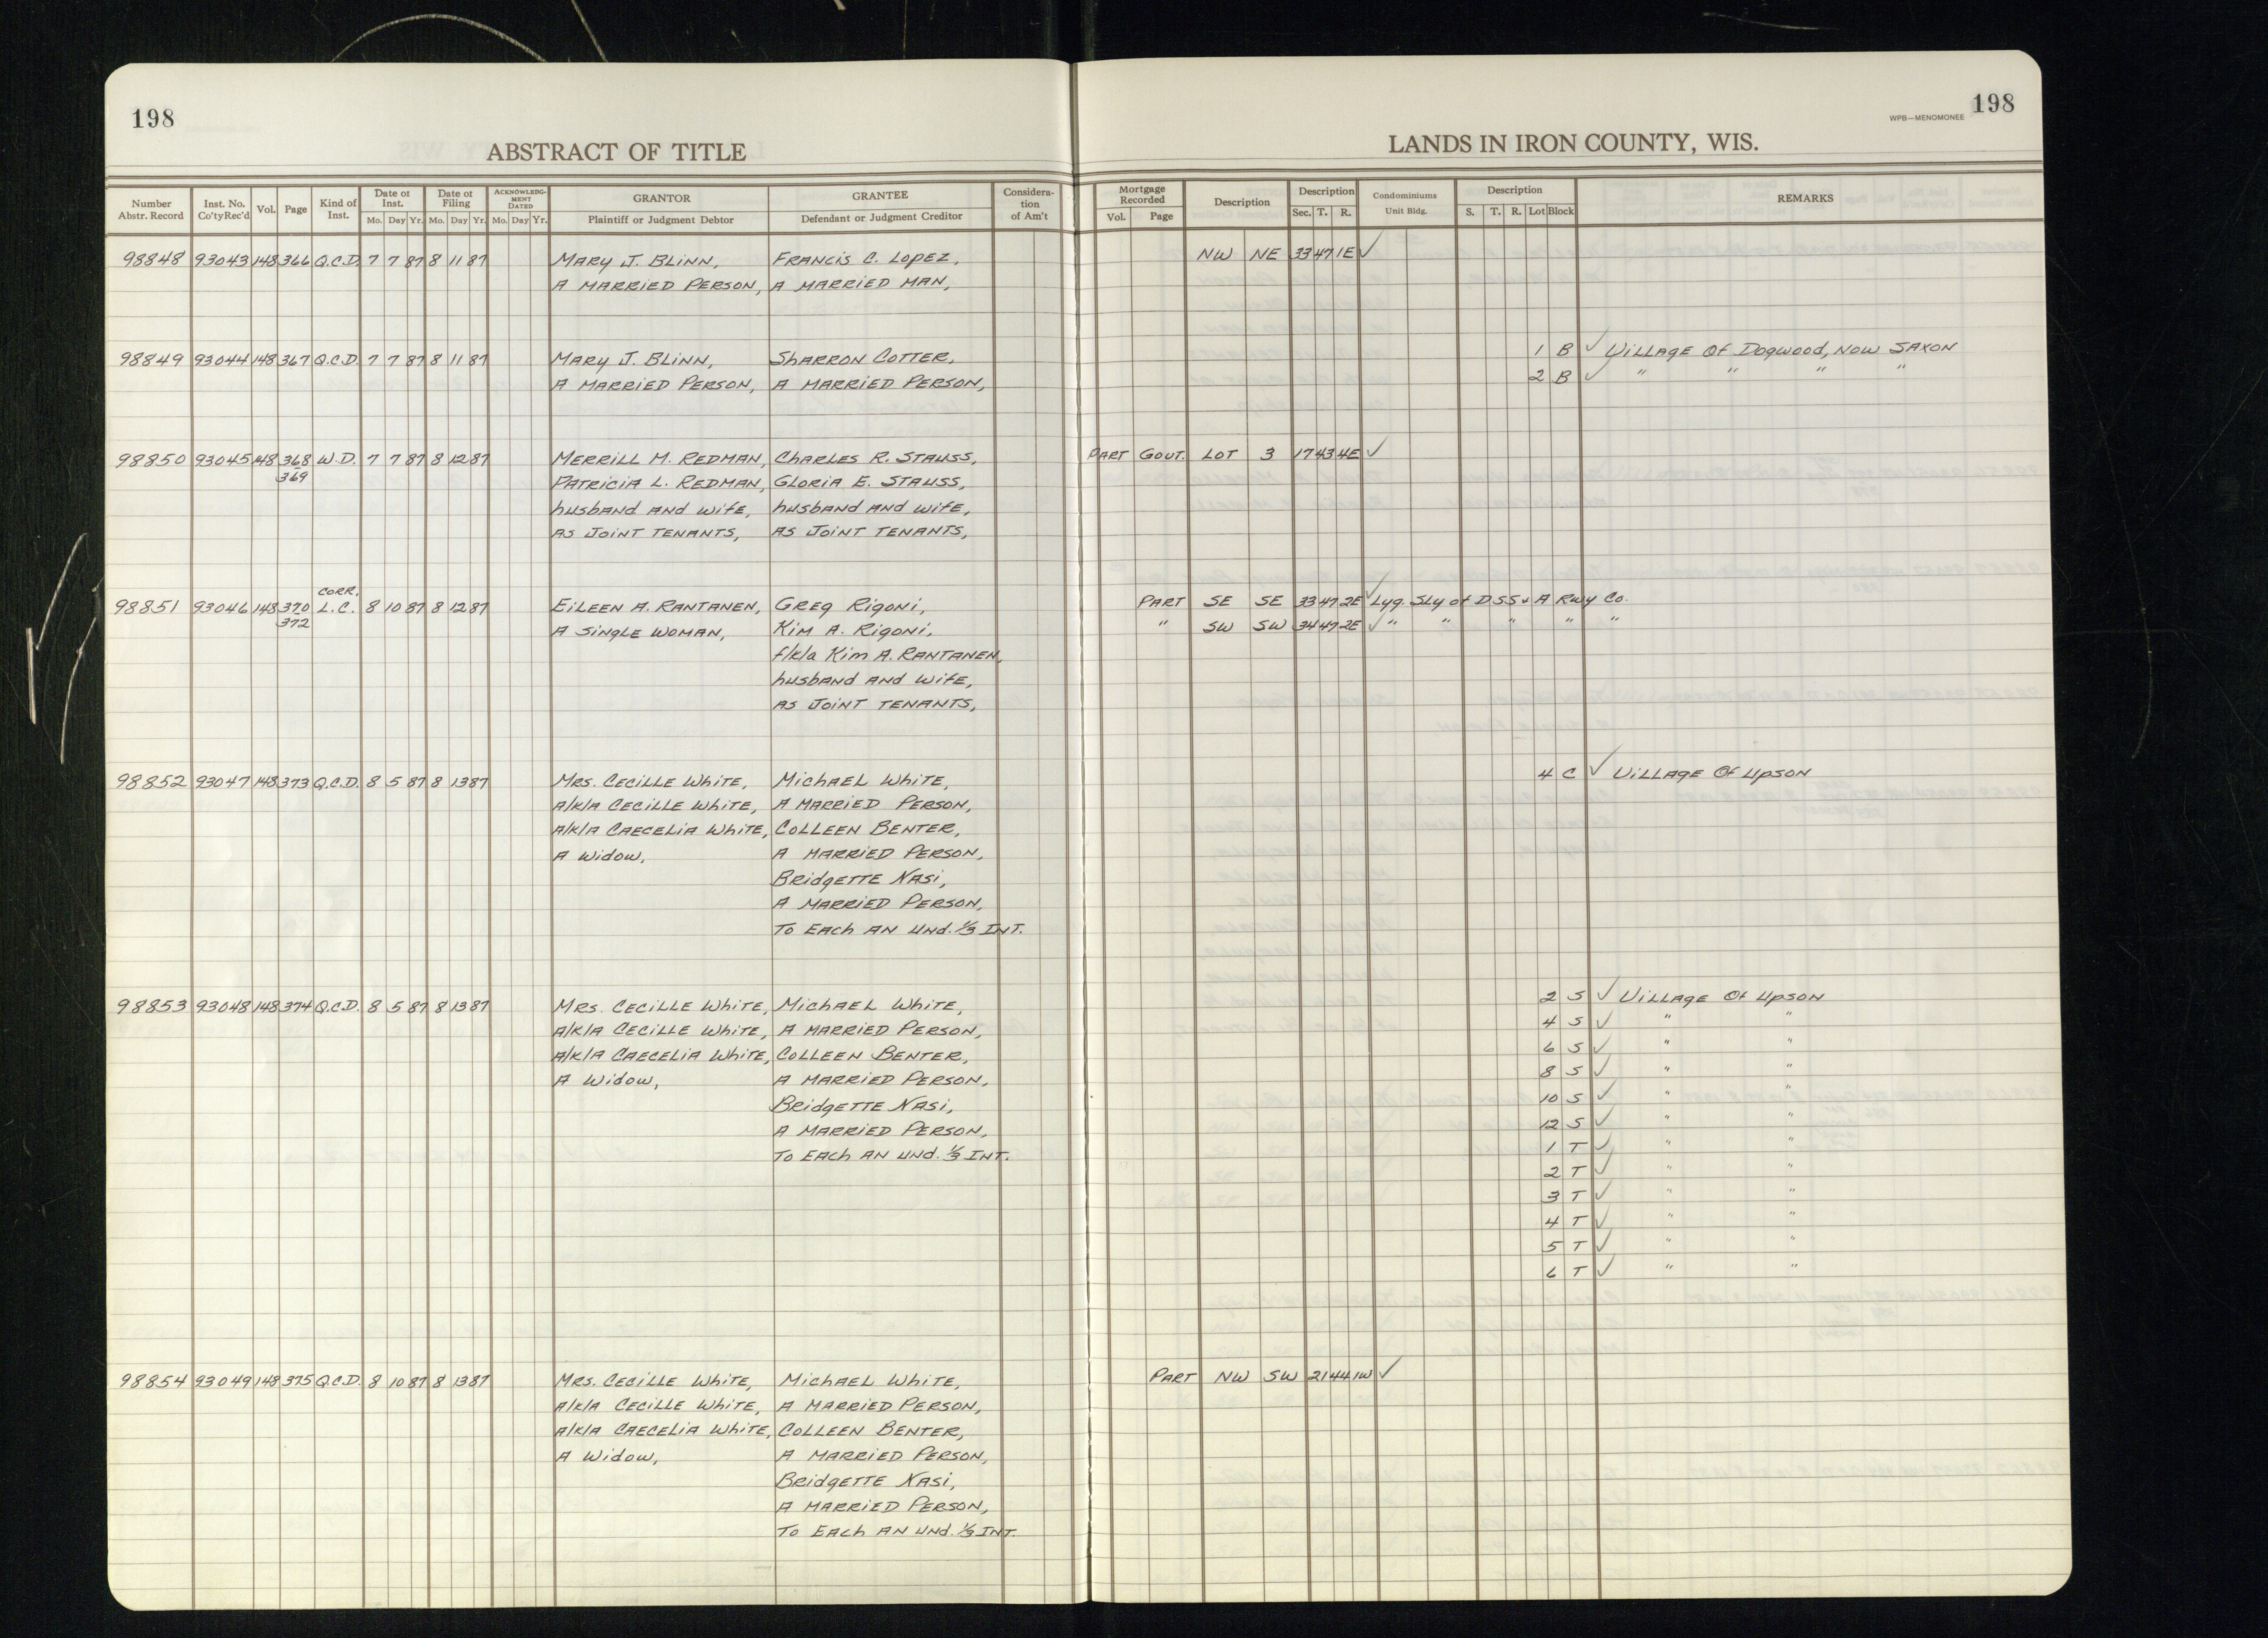 198
198
WPB—MENOMONEE
ABSTRACT OF TITLE
LANDS IN IRON COUNTY, WIS.
Number Abstr. Record | Inst. No. Co'ty Rec'd | Vol. | Page | Kind of Inst. | Date of Inst. Mo. Day Yr. | Date of Filing Mo. Day Yr. | ACKNOWLEDGMENT DATED Mo. Day Yr. | GRANTOR Plaintiff or Judgment Debtor | GRANTEE Defendant or Judgment Creditor | Consideration of Am't | Mortgage Recorded Vol. Page | Description | Description Sec. T. R. | Condominiums Unit Bldg. | Description S. T. R. Lot Block | REMARKS
98848 93043 148 366 Q.C.D. 7 7 87 8 11 87 MARY J. BLINN, FRANCIS C. LOPEZ, NW NE 33 47 1E ✓
A MARRIED PERSON, A MARRIED MAN,
98849 93044 148 367 Q.C.D. 7 7 87 8 11 87 MARY J. BLINN, SHARRON COTTER, 1 B ✓ VILLAGE Of Dogwood, NOW SAXON
A MARRIED PERSON, A MARRIED PERSON, 2 B ✓ " " " "
98850 93045 148 368 W.D. 7 7 87 8 12 87 MERRILL M. REDMAN, CHARLES R. STAUSS, PART GOVT. LOT 3 17 43 4E ✓
369 PATRICIA L. REDMAN, GLORIA E. STAUSS,
husband AND wife, husband AND wife,
AS JOINT TENANTS, AS JOINT TENANTS,
CORR.
98851 93046 148 370 L.C. 8 10 87 8 12 87 EILEEN A. RANTANEN, GREG RIGONI, PART SE SE 33 47 2E ✓ Lyg. SLy of D SS & A Rwy Co.
372 A SINGLE WOMAN, KIM A. RIGONI, " SW SW 34 47 2E ✓ " " " " "
f/k/a KIM A. RANTANEN,
husband AND wife,
AS JOINT TENANTS,
98852 93047 148 373 Q.C.D. 8 5 87 8 13 87 MRS. CECILLE WHITE, MICHAEL WHITE, 4 C ✓ VILLAGE Of UPSON
A/K/A CECILLE WHITE, A MARRIED PERSON,
A/K/A CAECELIA WHITE, COLLEEN BENTER,
A Widow, A MARRIED PERSON,
BRIDGETTE NASI,
A MARRIED PERSON,
TO EACH AN UND. 1/3 INT.
98853 93048 148 374 Q.C.D. 8 5 87 8 13 87 MRS. CECILLE WHITE, MICHAEL WHITE, 2 S ✓ VILLAGE Of UPSON
A/K/A CECILLE WHITE, A MARRIED PERSON, 4 S ✓ " "
A/K/A CAECELIA WHITE, COLLEEN BENTER, 6 S ✓ " "
A Widow, A MARRIED PERSON, 8 S ✓ " "
BRIDGETTE NASI, 10 S ✓ " "
A MARRIED PERSON, 12 S ✓ " "
TO EACH AN UND. 1/3 INT. 1 T ✓ " "
2 T ✓ " "
3 T ✓ " "
4 T ✓ " "
5 T ✓ " "
6 T ✓ " "
98854 93049 148 375 Q.C.D. 8 10 87 8 13 87 MRS. CECILLE WHITE, MICHAEL WHITE, PART NW SW 21 44 1W ✓
A/K/A CECILLE WHITE, A MARRIED PERSON,
A/K/A CAECELIA WHITE, COLLEEN BENTER,
A Widow, A MARRIED PERSON,
BRIDGETTE NASI,
A MARRIED PERSON,
TO EACH AN UND. 1/3 INT.